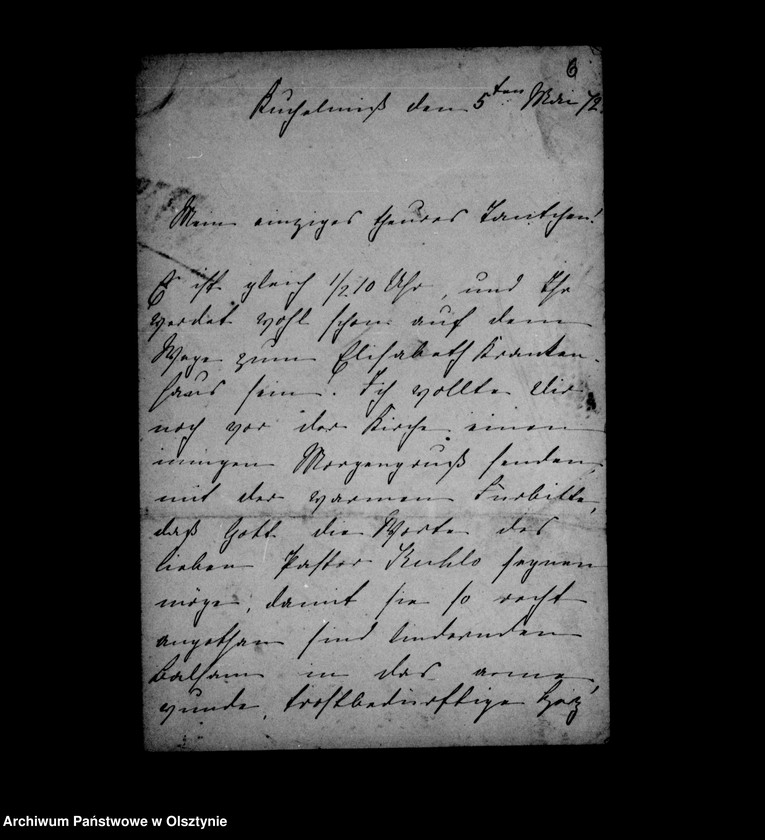 6
Kuchelmiß den 5ten Mai 72.
Mein einziges theures Tantchen!
Es ist gleich 1/2 10 Uhr, und Ihr
werdet wohl schon auf dem
Wege zum Elisabeth Kranken-
haus sein. Ich wollte Dir
noch vor der Kirche einen
innigen Morgengruß senden,
mit der warmen Fürbitte,
daß Gott die Worte des
lieben Pastor Kuhlo segnen
möge, damit sie so recht
angethan sind lindernden
Balsam in das arme,
wunde, trostbedürftige Herz
Archiwum Państwowe w Olsztynie